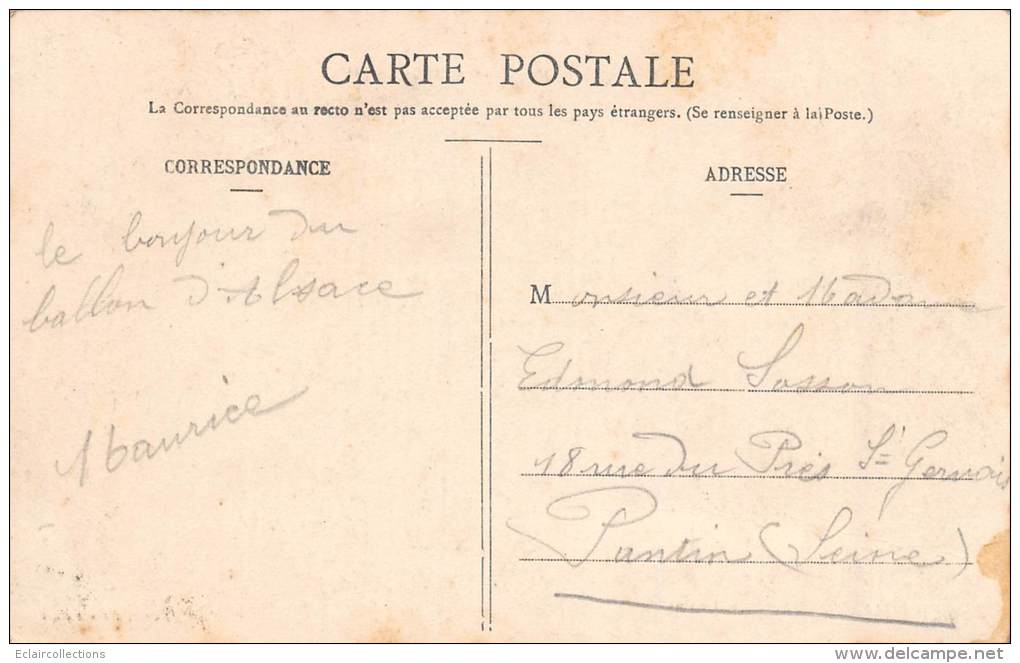 CARTE POSTALE
La Correspondance au recto n'est pas acceptée par tous les pays étrangers. (Se renseigner à la Poste.)
CORRESPONDANCE
le bonjour du
ballon d'Alsace
Maurice
ADRESSE
Monsieur et Madame
Edmond Sosson
18 rue du Prés St Gervais
Pantin (Seine)
Eclaircollections
delcampe.net